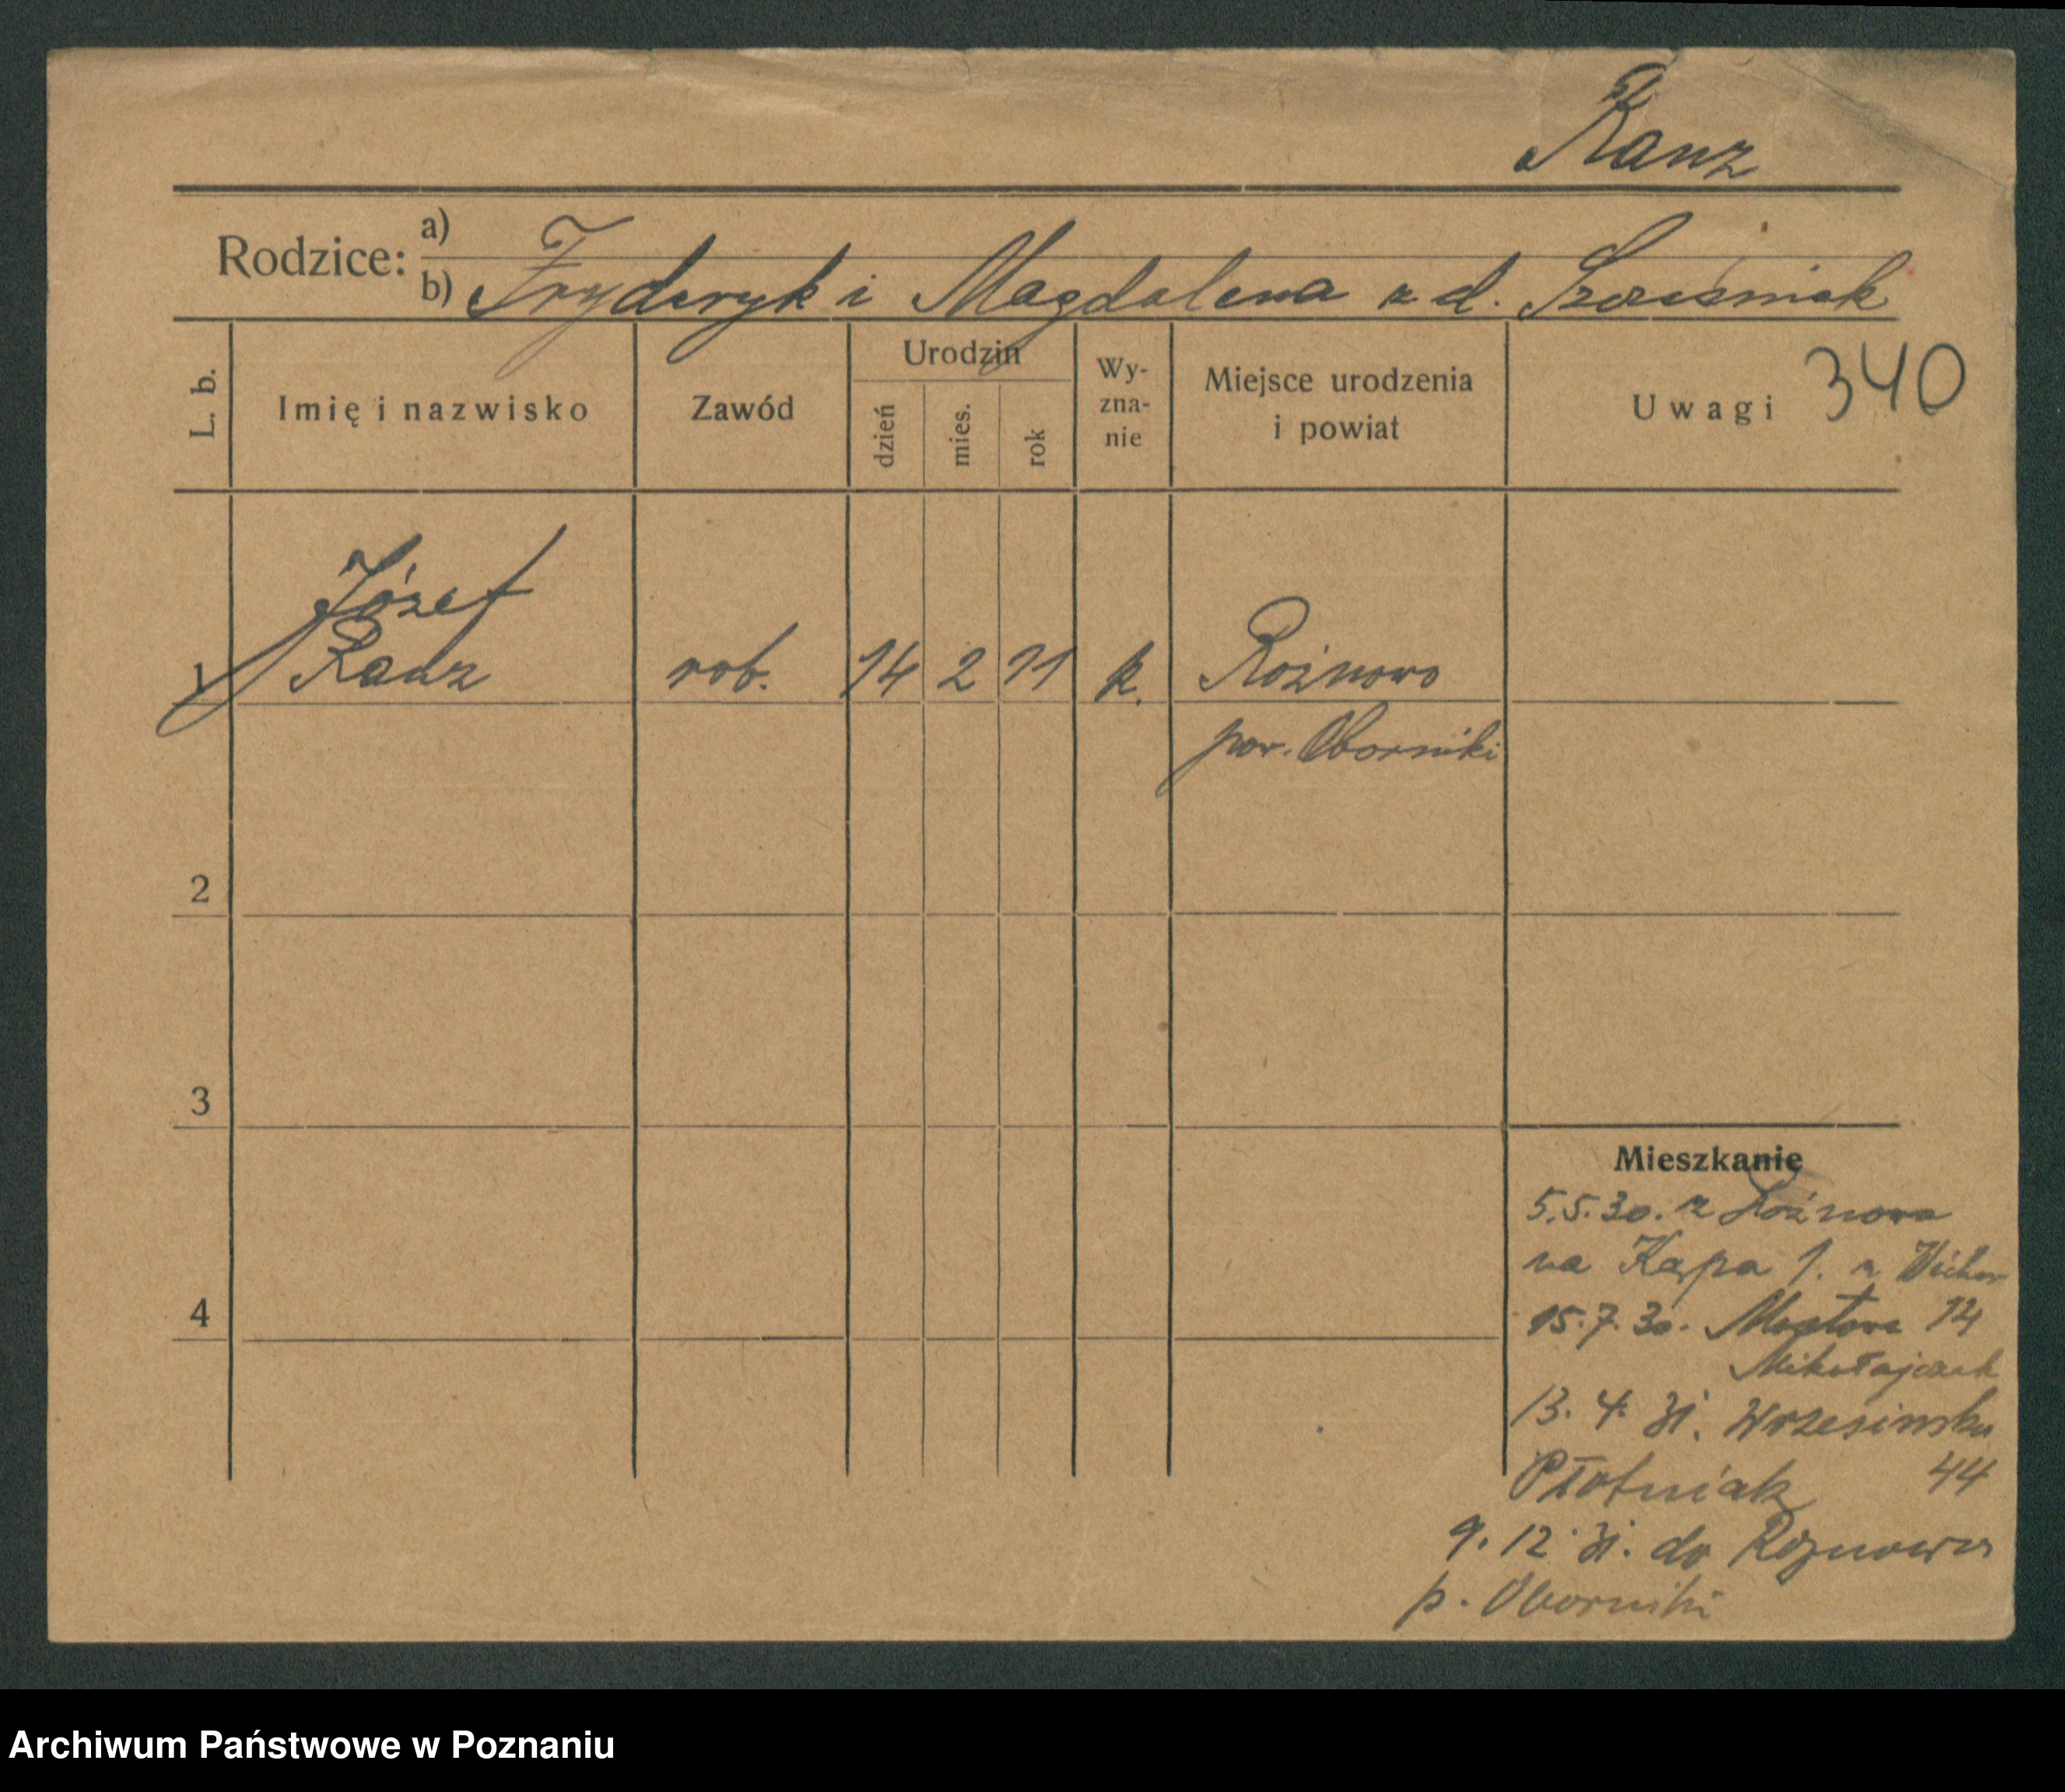 Ranz
Rodzice: a)
b) Fryderyk i Magdalena z d. Szcześniak
L. b. Imię i nazwisko Zawód Urodzin dzień mies. rok Wy-zna-nie Miejsce urodzenia i powiat Uwagi 340
Józef
1 Ranz rob. 14 2 11 k. Rożnowo
pow. Oborniki
2
3
4
Mieszkanie
5.5.30. z Rożnowa
na Karpa 1.
15.7.30. Mostowa 14
Mikołajczak
13.4.31. Wrzesińska
Płotniak 44
9.12.31. do Rożnowa
p. Oborniki
Archiwum Państwowe w Poznaniu